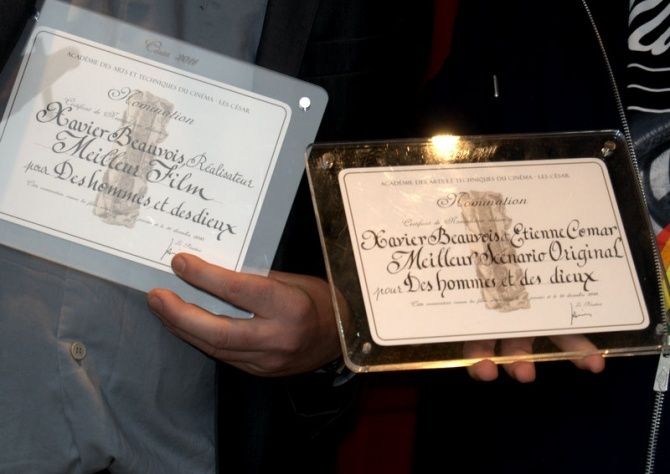 César 2011
ACADÉMIE DES ARTS ET TECHNIQUES DU CINÉMA - LES CÉSAR
Nomination
Certificat de
Xavier Beauvois, Réalisateur
Meilleur Film
pour Des hommes et des dieux
ACADÉMIE DES ARTS ET TECHNIQUES DU CINÉMA - LES CÉSAR
Nomination
Certificat de
Xavier Beauvois, Etienne Comar
Meilleur Scénario Original
pour Des hommes et des dieux